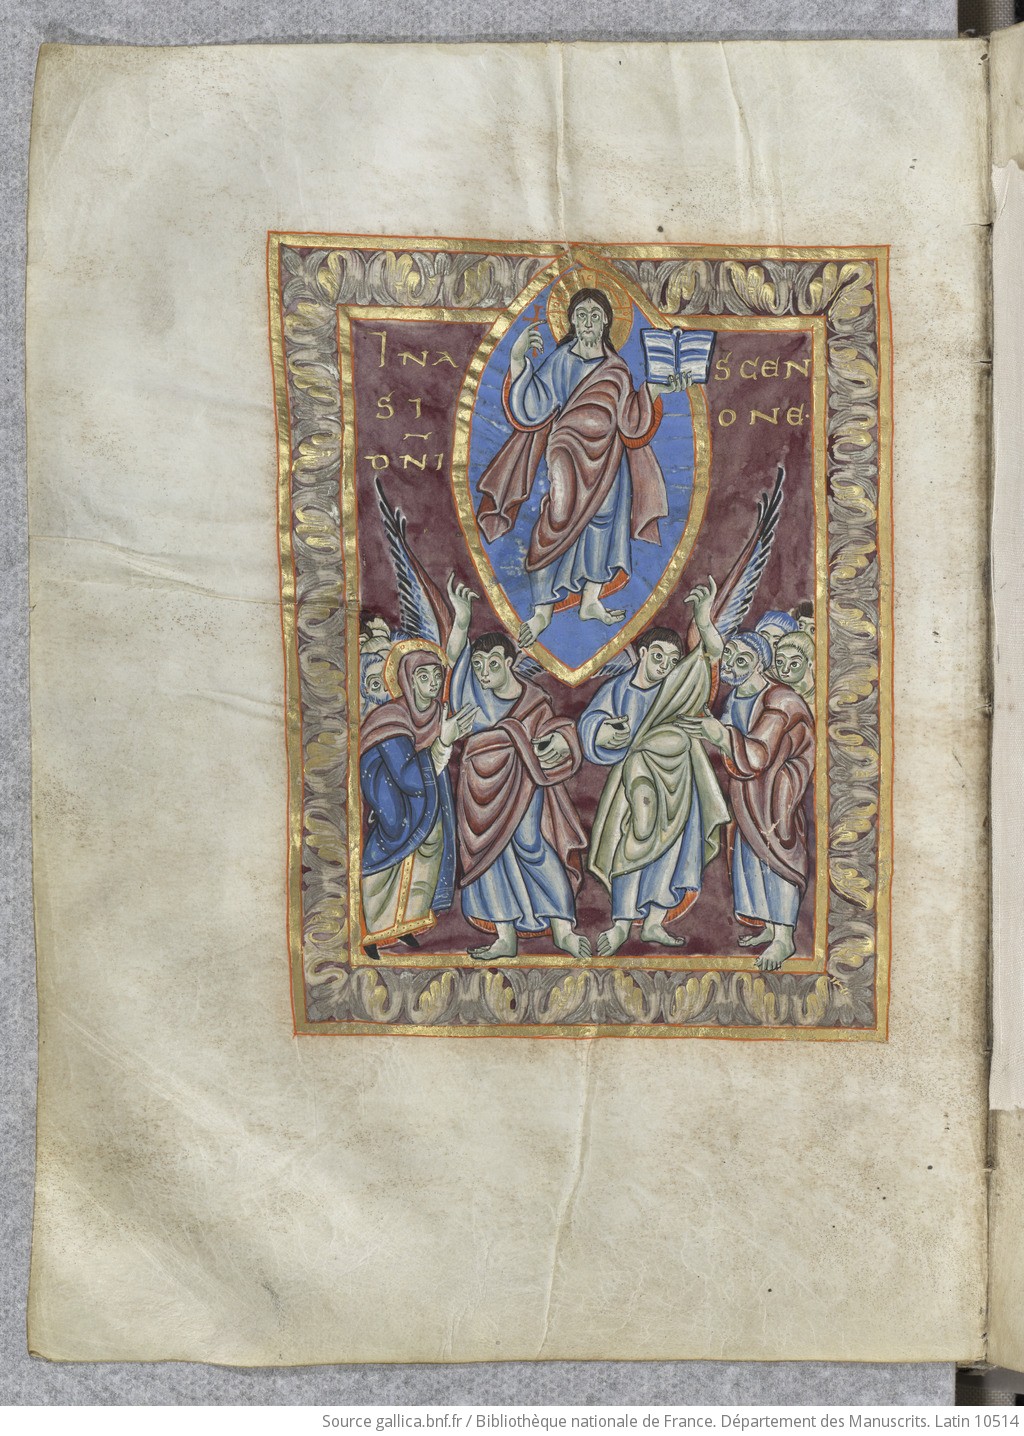 INA SCEN
SI ONE·
DÑI
Source gallica.bnf.fr / Bibliothèque nationale de France. Département des Manuscrits. Latin 10514